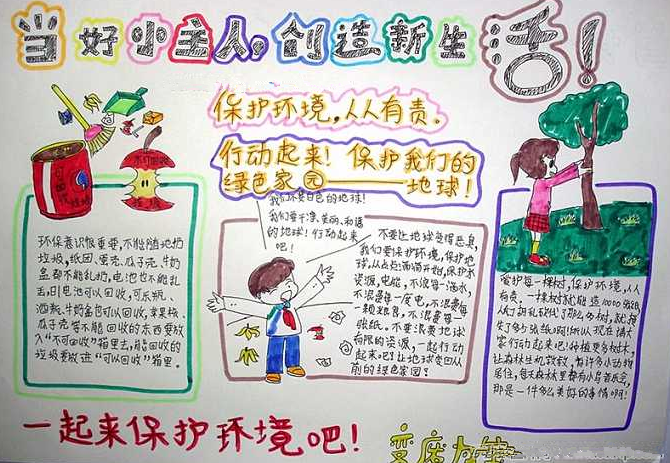 当好小主人，创造新生活！
保护环境，人人有责。
行动起来！保护我们的
绿色家园——地球！
可回收
不可回收
垃圾
环保意识很重要，不能随地扔
垃圾，纸团、蛋壳、瓜子壳、牛奶
盒都不能乱扔，电池也不能乱
丢，旧电池可以回收，可乐瓶、
酒瓶、牛奶盒也可以回收，苹果核、
瓜子壳等不能回收的东西要放
入“不可回收”箱里去，能回收的
垃圾要放进“可以回收”箱里。
我们不要白色的地球！
我们要干净、美丽、和谐
的地球！行动起来
吧！
不要让地球变得恶臭，
我们要保护环境，保护地
球，从点点滴滴开始，保护水
资源，电能，不浪费一滴水，
不浪费每一度电，不浪费每
一颗粮食，不浪费每一
张纸。不要浪费地球
有限的资源，一起行动
起来吧！让地球变回从
前的绿色家园？
爱护每一棵树，保护环境，人人
有责，一棵树就能造10000张纸，
人们胡乱砍伐了那么多树，就损
失了多少张纸啊！所以现在请大
家行动起来吧！种植更多树木，
让森林生机勃勃，有许多小动物
居住，每天森林里都有小鸟音乐会，
那是一件多么美好的事情啊！
一起来保护环境吧！
变废为宝